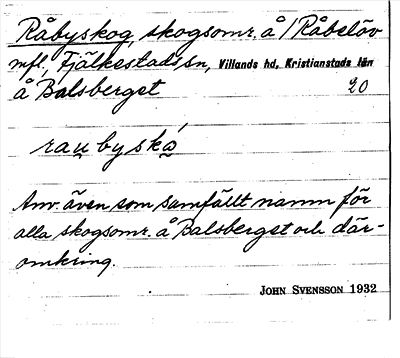 Råbyskog, skogsomr. å 1 Råbelöv
mfl., Fjälkestads sn, Villands hd, Kristianstads län
å Balsberget 20
rau̯ byskə̯́
Anv. även som samfällt namn för
alla skogsomr. å Balsberget och där-
omkring.
JOHN SVENSSON 1932